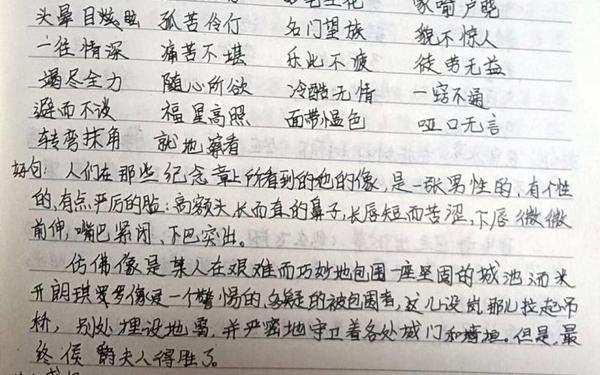 家喻户晓
头晕目眩 孤苦伶仃 名门望族 貌不惊人
一往情深 痛苦不堪 乐此不疲 徒劳无益
竭尽全力 随心所欲 冷酷无情 一窍不通
避而不谈 福星高照 面带愠色 哑口无言
转弯抹角 就地
好句 人们在那些纪念章上所看到的他的像,是一张男性的、有个性
的,有点严厉的脸:高额头,长而直的鼻子,长唇短而苦涩,下唇微微
前伸,嘴巴紧闭,下巴突出。
仿佛像是某人在艰难而巧妙地包围一座坚固的城池,而米
开朗琪罗多像是一个警惕的、多疑的被包围者,这儿设岗,那儿拉起吊
桥,别处埋设地雷,并严密地守卫着各处城门和墙垣。但是,最
终侯爵夫人得胜了。